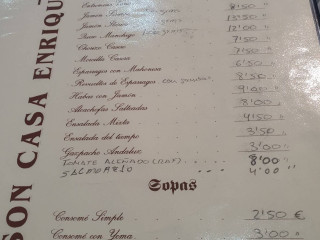 SON CASA ENRIQU
8'50 "
Jamon 13'50 "
Jamon 7'00 "
Queso Manchego 7'50 "
Chorizo Casero 7'50 "
Morcilla Casera 6'50 "
Esparragos con Mahonesa 8'50 "
Revueltos de Esparragos con jamon 9'00 "
Habas con Jamón 8'00 "
Alcachofas Salteadas 4'50 "
Ensalada Mixta 3'50 "
Ensalada del tiempo 3'00 "
Gazpacho Andaluz 8'00 "
TOMATE ALIÑADO (RAF) 4'00 "
SALMOREJO
Sopas
Consomé Simple 2'50 €
Consomé con Yema 3'00 "